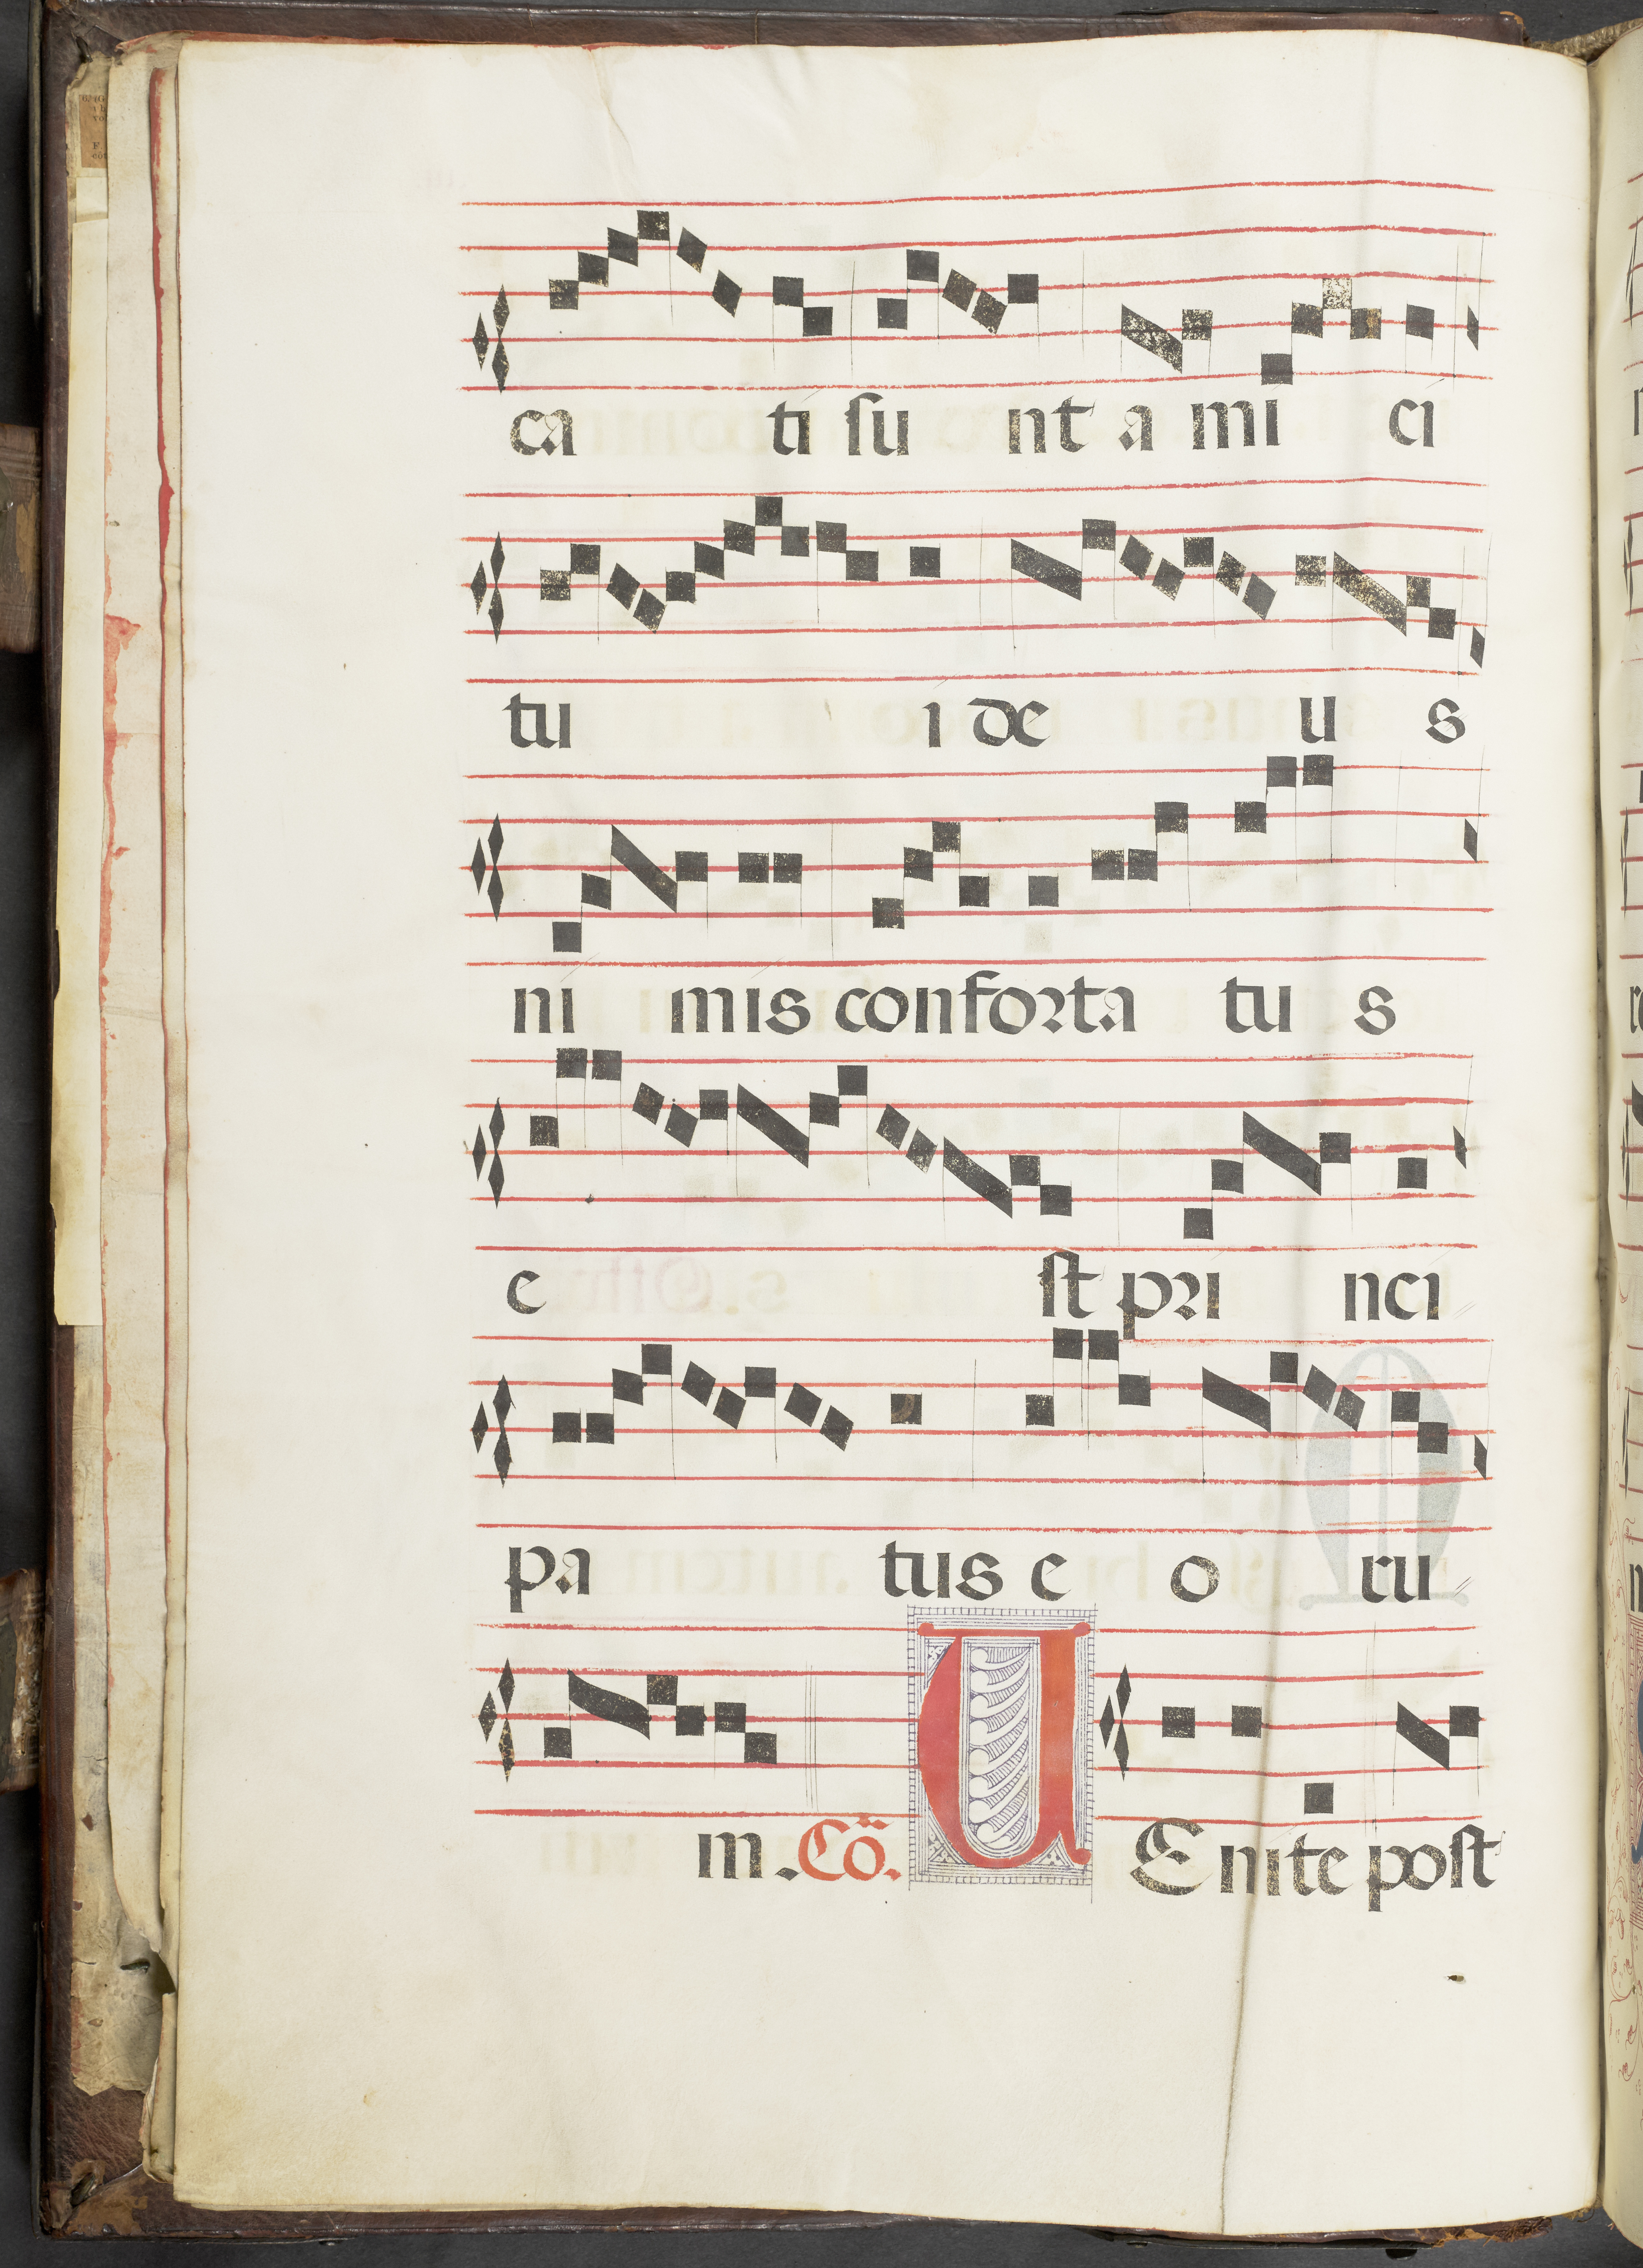 ca ti su nt a mi ci
tu i de u s
ni mis conforta tu s
e st pri nci
pa tus e o ru
m. Cõ. U E nite post